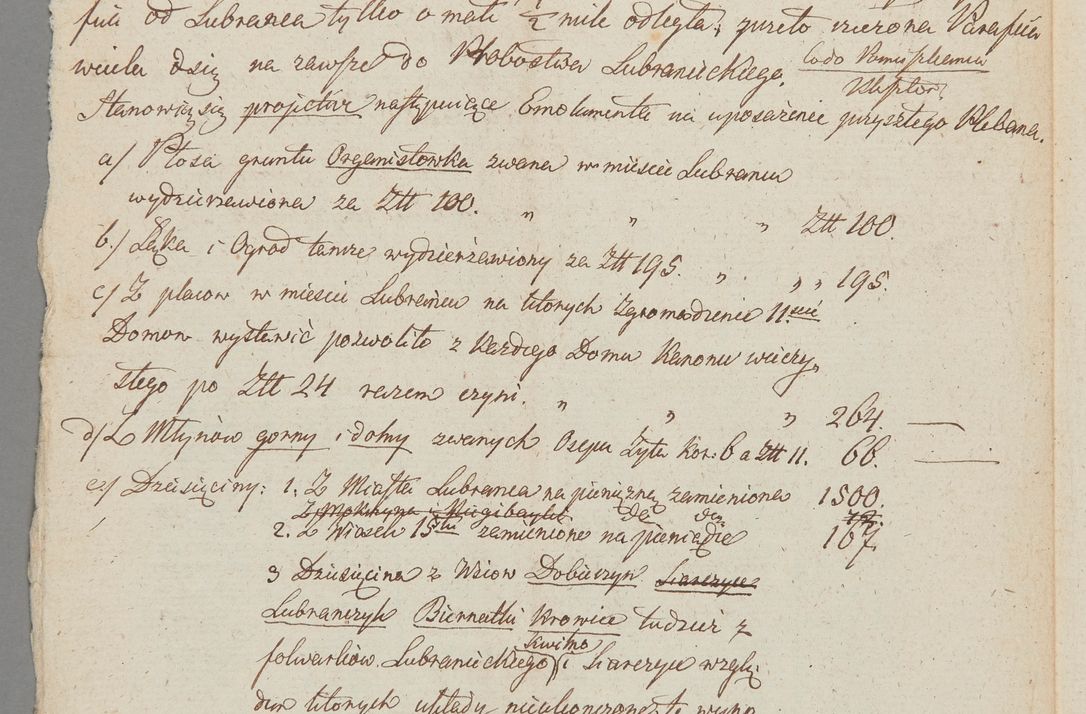 fii od Lubrańca tylko o mali 1/2 mile odległa; przeto rzeczona Parafiia
wciela się na zawsze do Probostwa Lubranieckiego.
Stanowią się projictów następuiące Emolumenta na uposażenie przyszłego Plebana.
a/ Płosa gruntu Organistowka zwana w mieście Lubrańcu
wydzierzawiona za Ztt 100. " " " Ztt 100.
b./ Łąka i Ogrod tamże wydzierżawiony za Ztt 195. " " " 195.
c/ Z placow w mieście Lubrańcu na ktorych Zgromadzenie 11.
Domow wystawić pozwoliło z każdego Domu Kanonu wieczy„
stego po Ztt 24 razem czyni. " " " 264.
d/ Z Młynów gorny i dolny zwanych Osepu Żyta Kor: 6 a Ztt 11. 66.
e/ Dziesięciny: 1. Z Miasta Lubrańca na pieniężną zamieniona 1500.
2. Z Wiosek 15tu zamienione na pieniądze 167.
3 Dziesięcina z Wsiow Dobierzyn
Lubrańczyk Biernatki Krowice tudzież z
Kwilno
folwarków Lubranieckiego i Siarczyce wzglę:
dem ktorych układy nieukończone te wyno